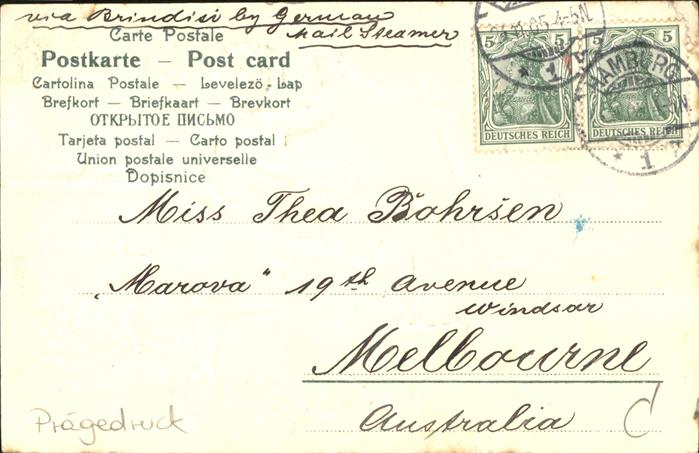 via Brindisi by German
Mail Steamer
Carte Postale
Postkarte — Post card
Cartolina Postale — Levelező-Lap
Brefkort — Briefkaart — Brevkort
ОТКРЫТОЕ ПИСЬМО
Tarjeta postal — Carto postal
Union postale universelle
Dopisnice
5 5
DEUTSCHES REICH
* 1 *
5 5
DEUTSCHES REICH
HAMBURG
* 1 *
Miss Thea Bohrsen
„Marova" 19th Avenue
Windsor
Melbourne
Australia
Prägedruck